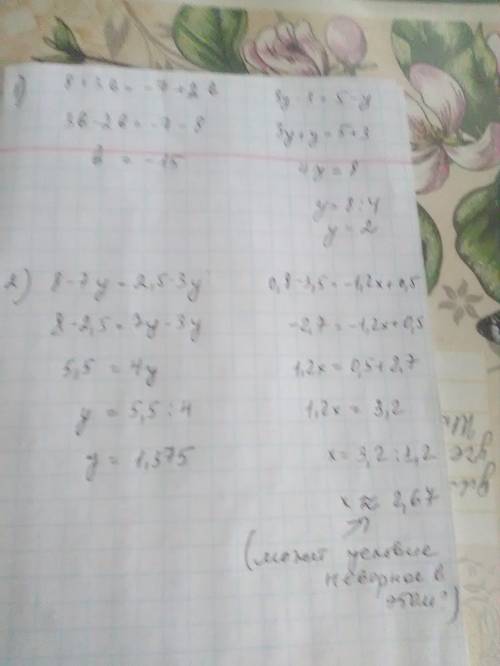 1) 8+3b = -7+2b
3b-2b = -7-8
b = -15
3y-3 = 5-y
3y+y = 5+3
4y = 8
y = 8:4
y = 2
2) 8-7y = 2,5-3y
8-2,5 = 7y-3y
5,5 = 4y
y = 5,5:4
y = 1,375
0,8-3,5 = -1,2x+0,5
-2,7 = -1,2x+0,5
1,2x = 0,5+2,7
1,2x = 3,2
x = 3,2:1,2
x ≈ 2,67
(может условие
неверное в
этом?)